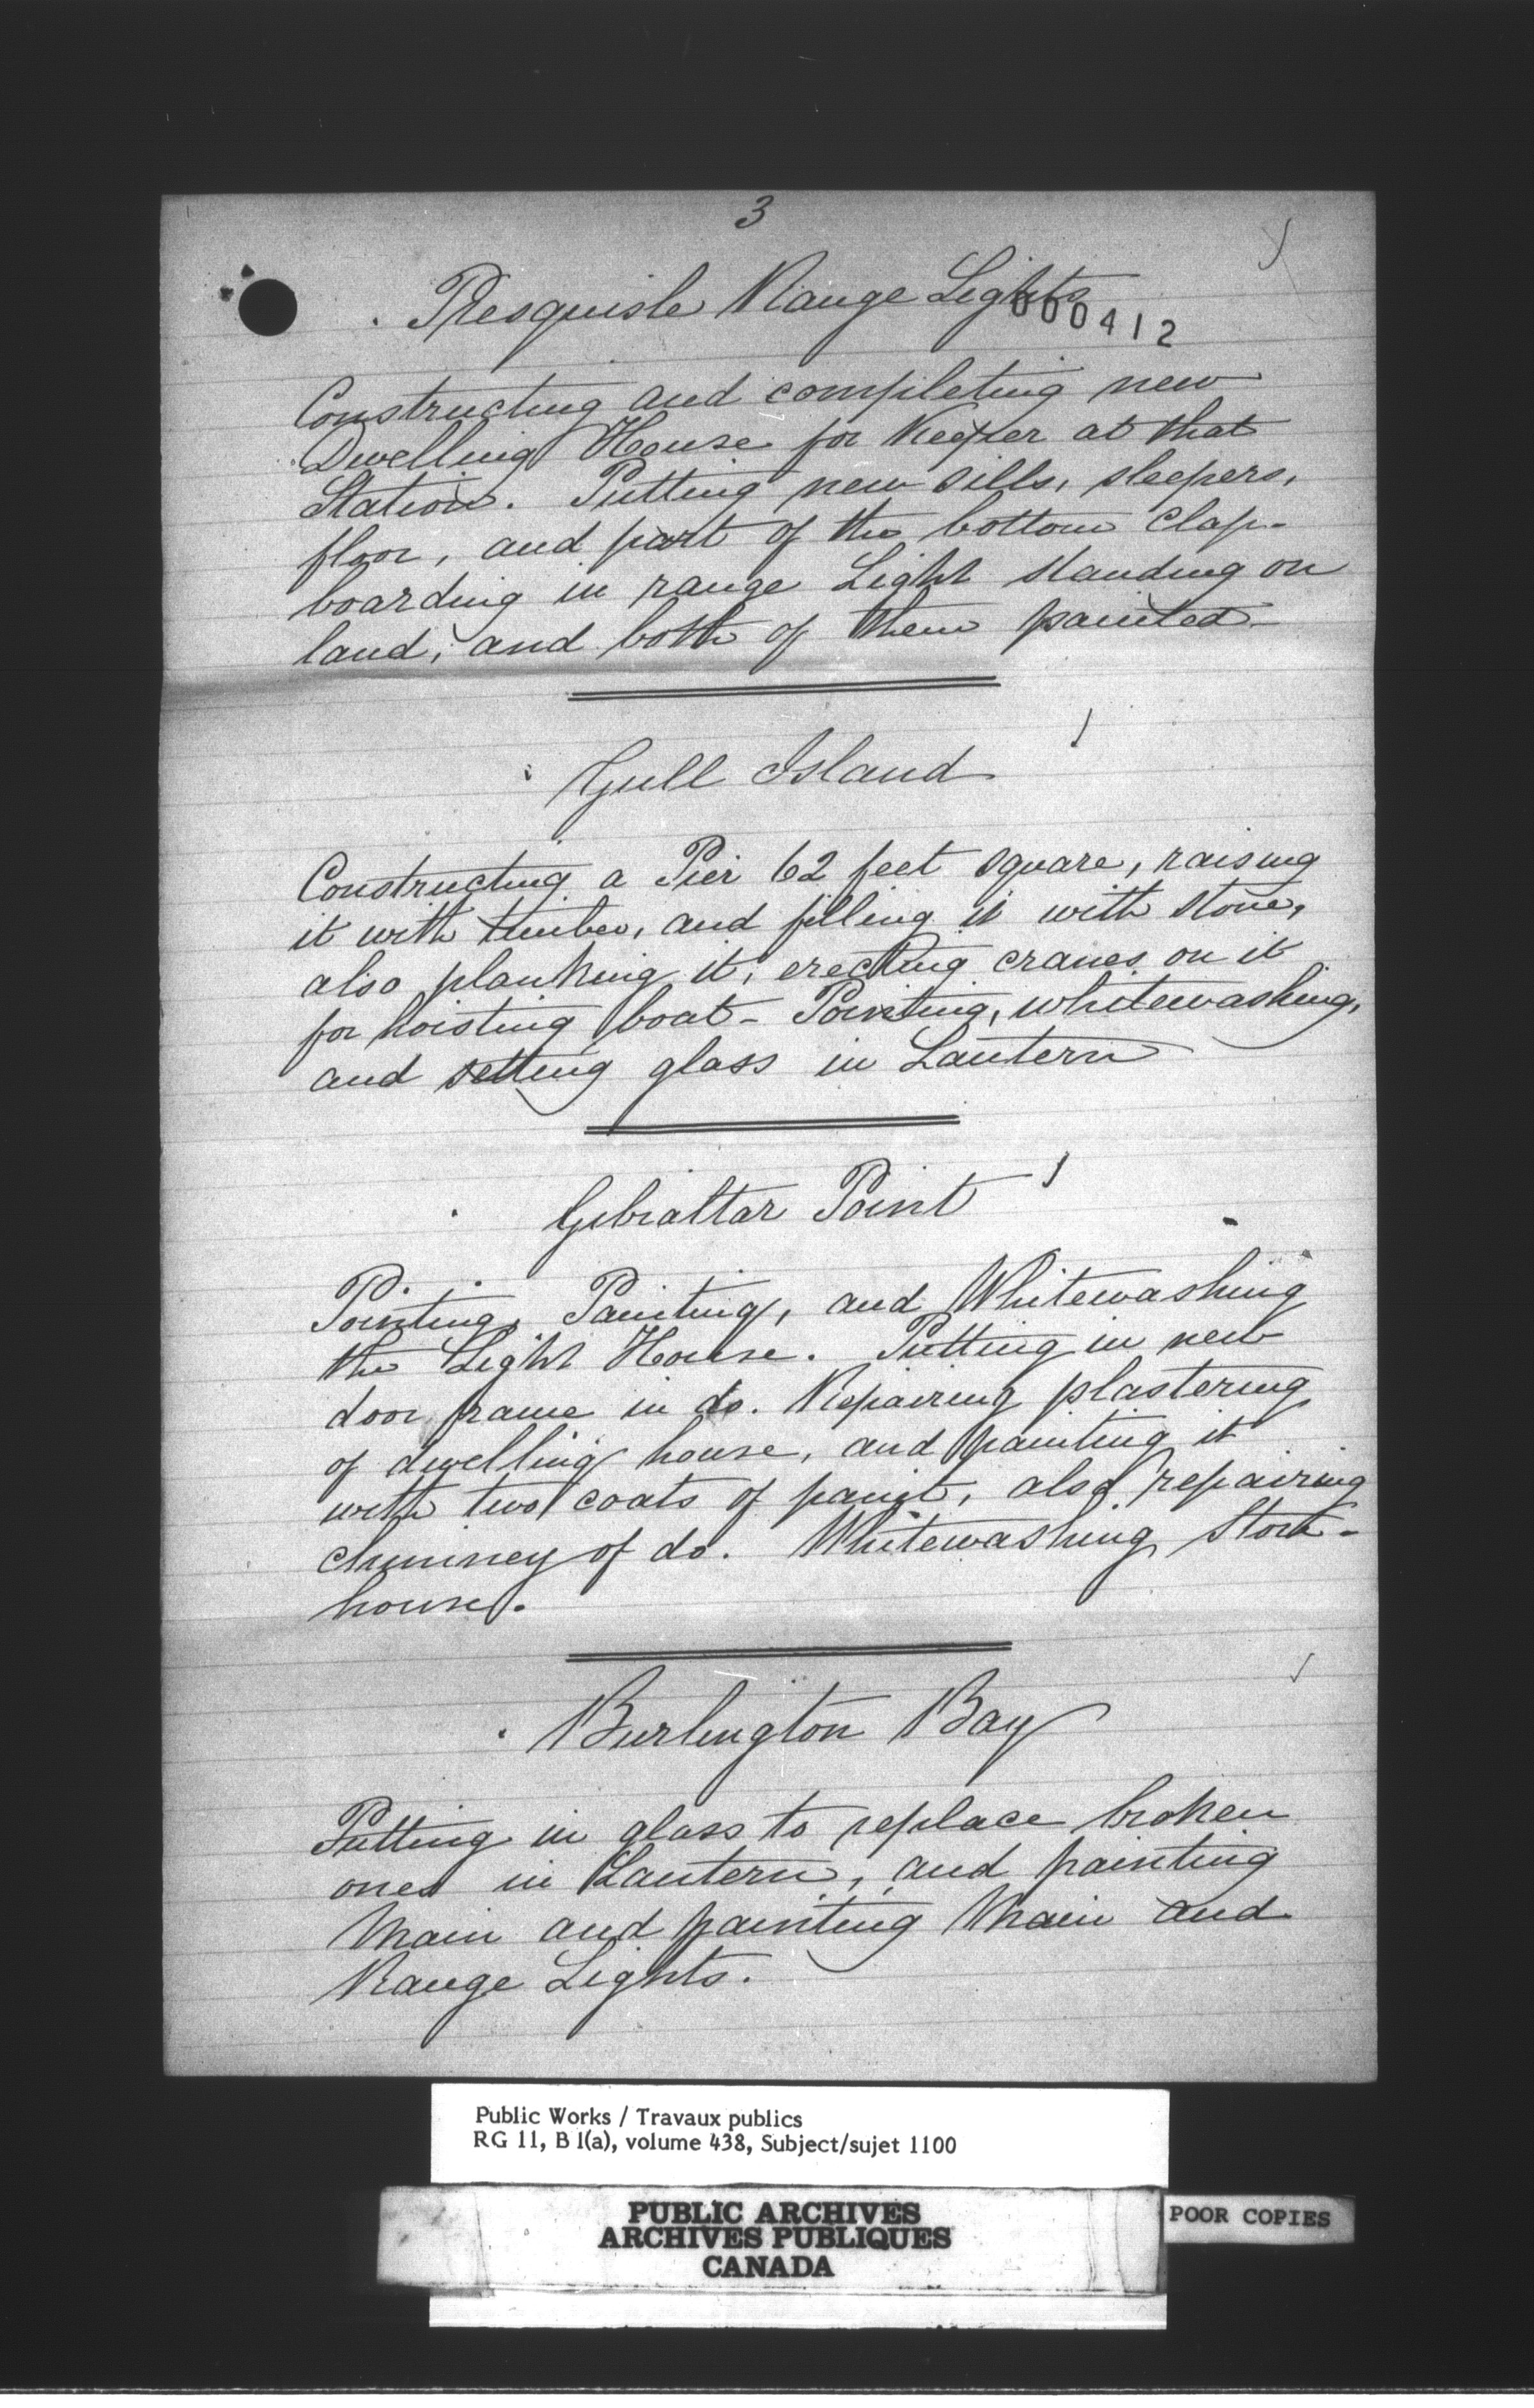 3
Presquisle Range Lights
000412
Constructing and completing new
Dwelling House for Keeper at that
Station. Putting new sills, sleepers,
floor, and part of the bottom clap-
boarding in range Light standing on
land, and both of them painted
Gull Island
Constructing a Pier 62 feet square, raising
it with timber, and filling it with stone,
also planking it, erecting cranes on it
for hoisting boat - Pointing, whitewashing,
and setting glass in Lantern
Gibraltar Point
Pointing, Painting, and Whitewashing
the Light House. Putting in new
door frame in do. Repairing plastering
of dwelling house, and painting it
with two coats of paint, also repairing
chimney of do. Whitewashing Store-
house.
Burlington Bay
Putting in glass to replace broken
ones in Lantern, and painting
Main and painting Main and
Range Lights.
Public Works / Travaux publics
RG 11, B 1(a), volume 438, Subject/sujet 1100
PUBLIC ARCHIVES
ARCHIVES PUBLIQUES
CANADA
POOR COPIES